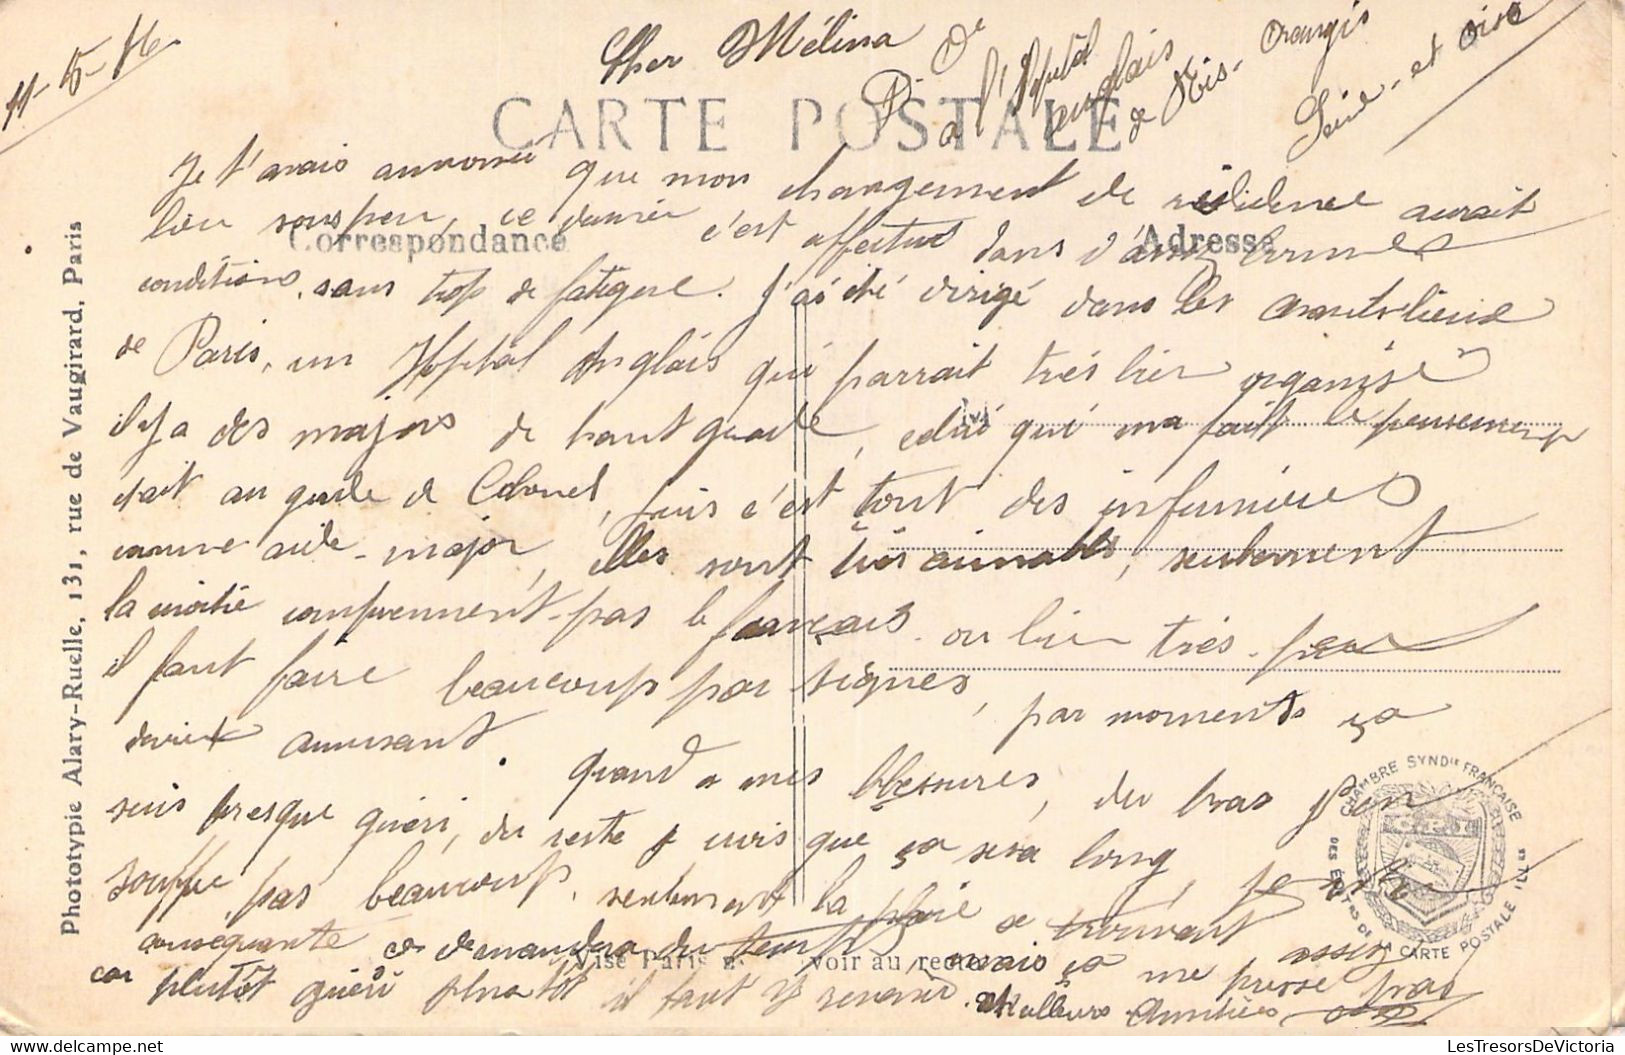 11-5-16
Cher Mélina
P. De
à l'Hopital
anglais
de Ris-Orangis
Seine-et oise
CARTE POSTALE
Correspondance
Adresse
Je t'avais annoncé que mon changement de résidence aurait
lieu sous peu, ce dernier c'est effectué dans d'assez bonnes
conditions, sans trop de fatigue. J'ai été dirigé dans les
de Paris, un Hopital Anglais qui parrait très bien organisé
il y a des majors de haut grade, celui qui ma fait le pensement
était au grade de Colonel, puis c'est tout des infirmières
comme aide-major, elles sont très aimables, seulement
la moitié comprennent pas le français ou bien très-peu
il faut faire beaucoup par signes, par moments ça
devient amusant. quand a mes blessures, du bras j'en
suis presque guéri, du reste je crois que ça sera long, je
souffre pas beaucoup, seulement la plaie se trouvant assez
conséquente ce demandera du temps, mais ça me presse pas
car plutôt guéri plus tôt il faut y revenir. Meilleurs Amitiés
Phototypie Alary-Ruelle, 131, rue de Vaugirard, Paris
Visé Paris voir au recto
CHAMBRE SYND^LE FRANÇAISE
DES ÉDIT^RS DE LA CARTE POSTALE ILL^ÉE
LesTresorsDeVictoria
https://www.delcampe.net